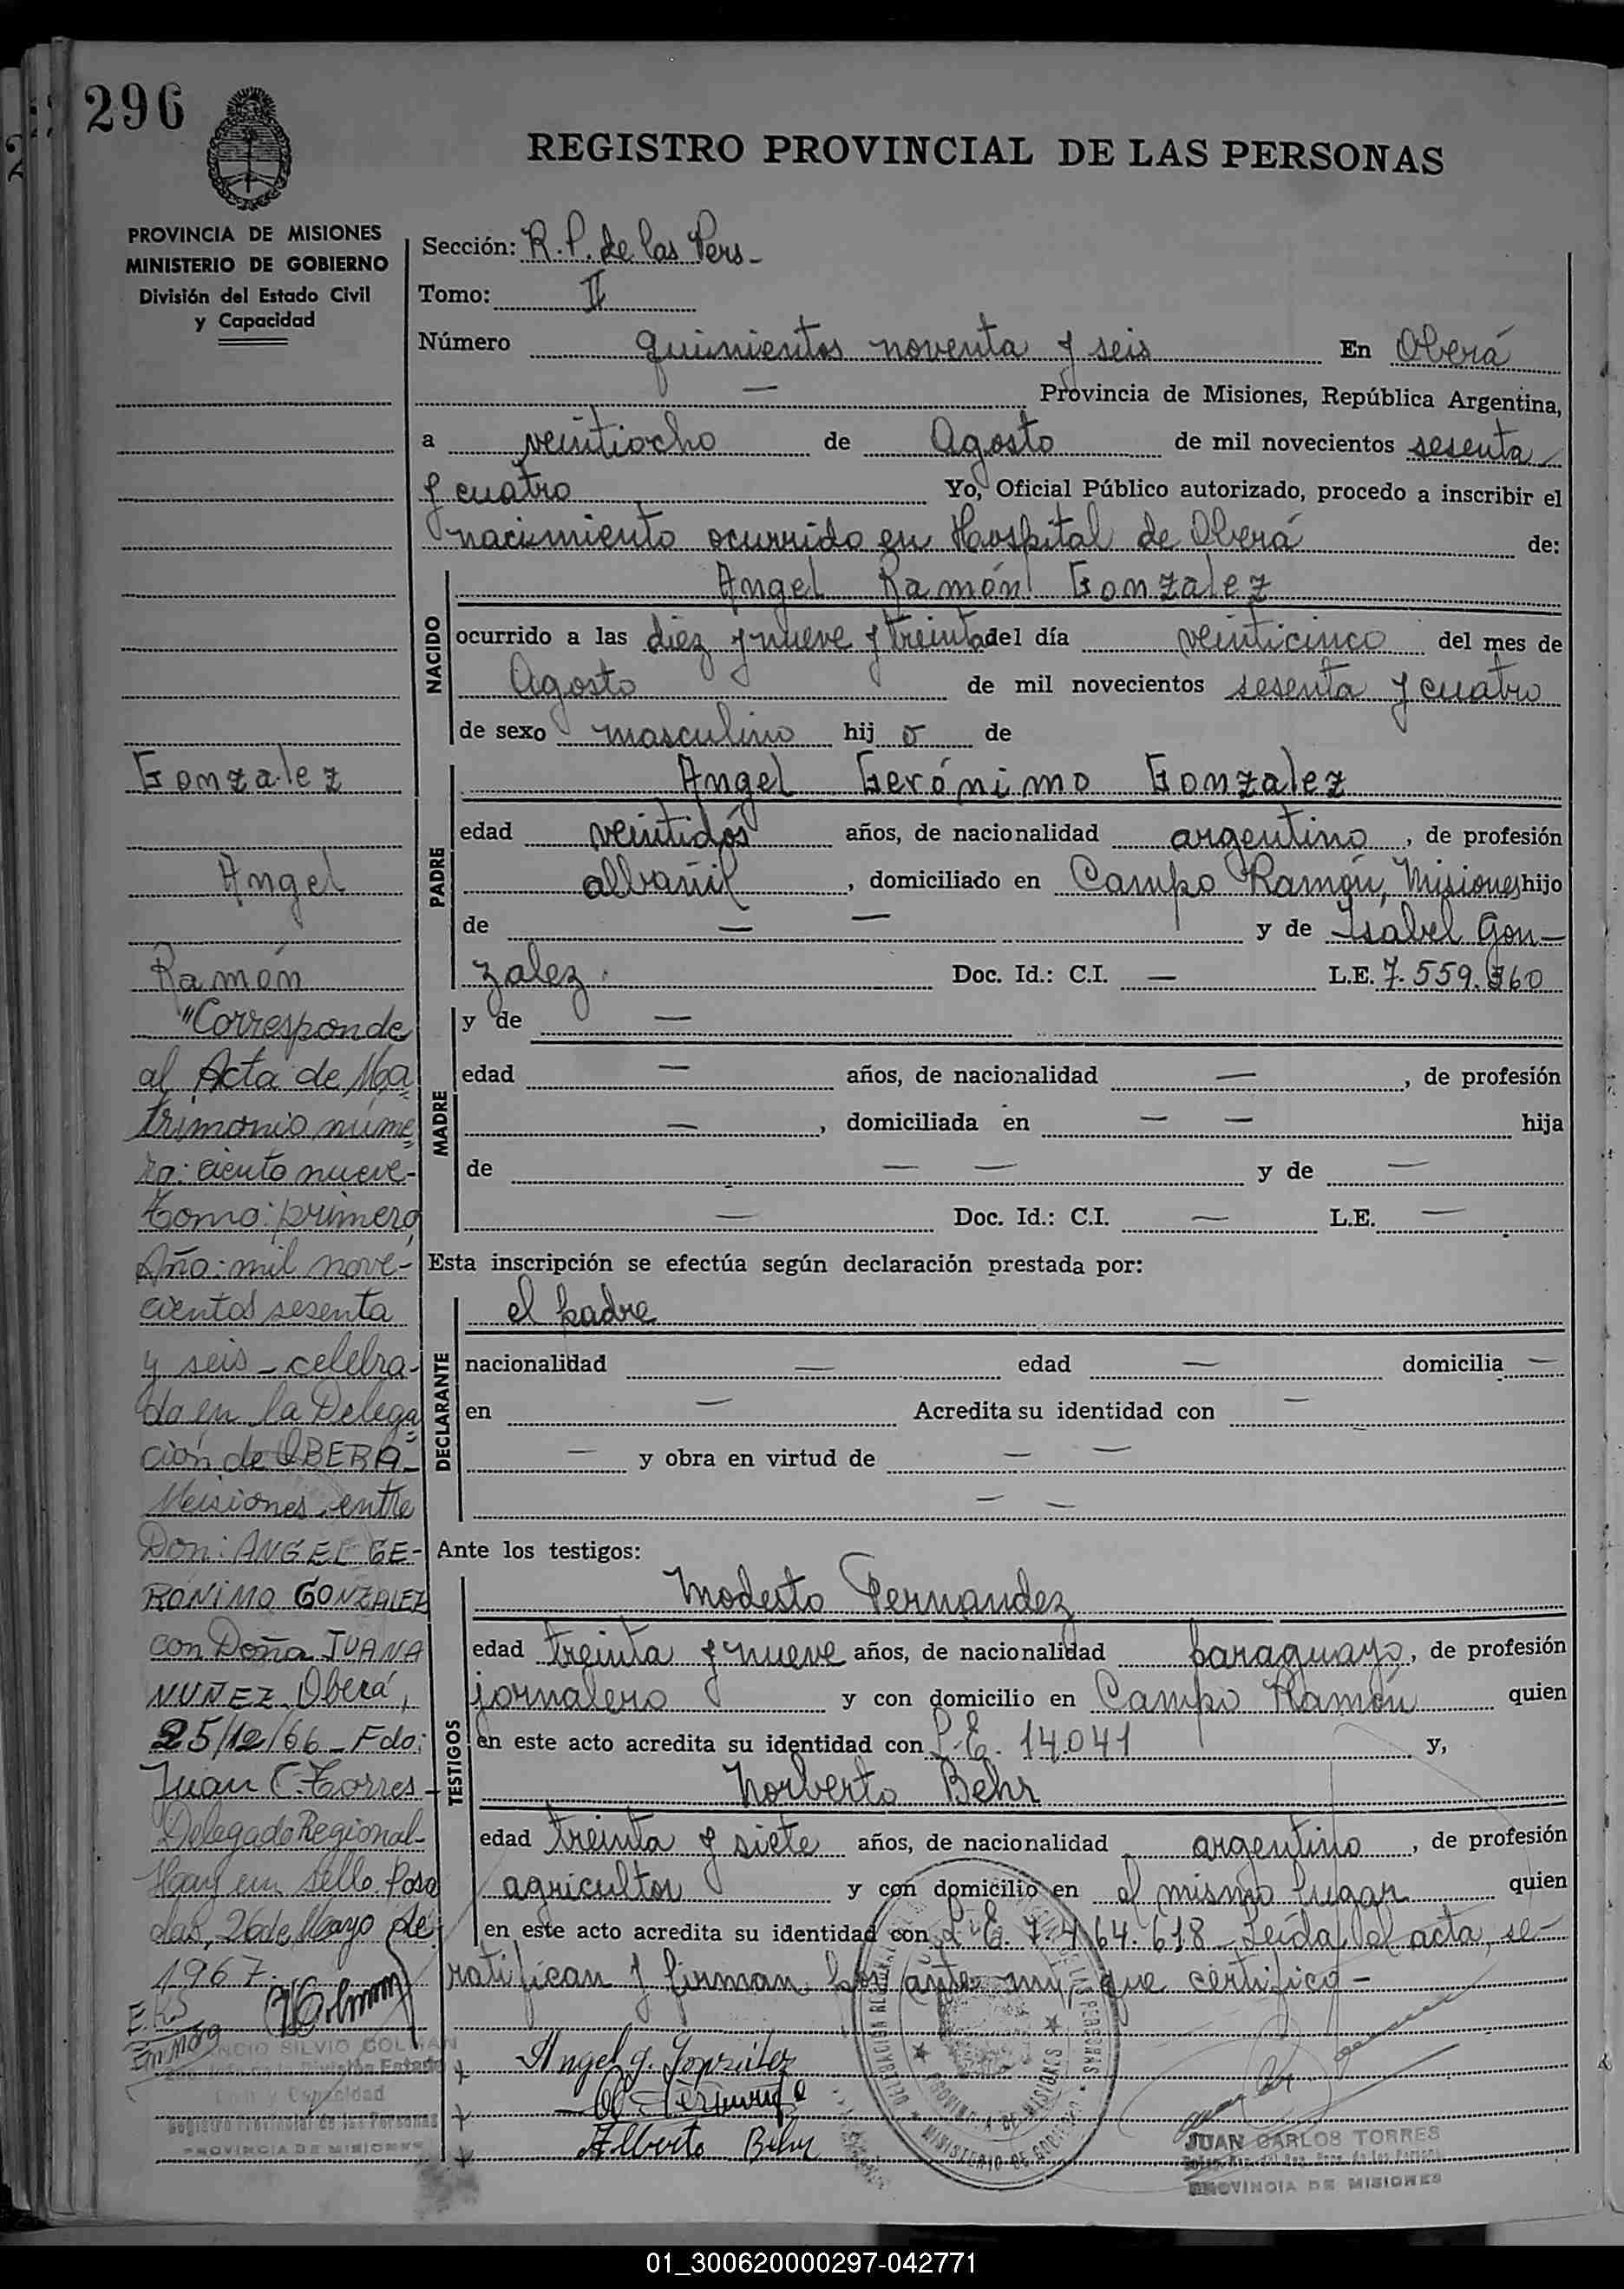 296
REGISTRO PROVINCIAL DE LAS PERSONAS
PROVINCIA DE MISIONES
MINISTERIO DE GOBIERNO
División del Estado Civil
y Capacidad
Sección: R. P. de las Pers-
Tomo: II
Número quinientos noventa y seis En Oberá
— Provincia de Misiones, República Argentina,
a veintiocho de Agosto de mil novecientos sesenta
y cuatro Yo, Oficial Público autorizado, procedo a inscribir el
nacimiento ocurrido en Hospital de Oberá de:
NACIDO
Angel Ramón Gonzalez
ocurrido a las diez y nueve y treinta del día veinticinco del mes de
Agosto de mil novecientos sesenta y cuatro
de sexo masculino hij o de
PADRE
Angel Gerónimo Gonzalez
edad veintidós años, de nacionalidad argentino, de profesión
albañil, domiciliado en Campo Ramón, Misiones hijo
de — — y de Isabel Gon-
zalez. Doc. Id.: C.I. — L.E. 7.559.360
MADRE
y de —
edad — años, de nacionalidad —, de profesión
—, domiciliada en — — hija
de — — y de —
— Doc. Id.: C.I. — L.E. —
Esta inscripción se efectúa según declaración prestada por:
DECLARANTE
el padre
nacionalidad — edad — domicilia —
en — Acredita su identidad con —
— y obra en virtud de — —
— —
Ante los testigos:
TESTIGOS
Modesto Fernandez
edad treinta y nueve años, de nacionalidad paraguayo, de profesión
jornalero y con domicilio en Campo Ramón quien
en este acto acredita su identidad con L.E. 14.041 y,
Norberto Behr
edad treinta y siete años, de nacionalidad argentino, de profesión
agricultor y con domicilio en el mismo lugar quien
en este acto acredita su identidad con L.E. 7.464.618 - Leída el acta, se
ratifican y firman por ante mi que certifico -
Angel G. González
Alberto Behr
JUAN CARLOS TORRES
PROVINCIA DE MISIONES
PROVINCIA DE MISIONES
MINISTERIO DE GOBIERNO
Gonzalez
Angel
Ramón
"Corresponde
al Acta de Ma=
trimonio núme=
ro: ciento nueve-
Tomo: primero,
Año: mil nove-
cientos sesenta
y seis - celebra-
do en la Delega=
ción de OBERA-
Misiones, entre
Don: ANGEL GE-
RÓNIMO GONZALEZ
con Doña JUANA
NUÑEZ. Oberá,
25/12/66 - Fdo:
Juan C. Torres-
Delegado Regional-
Hay un sello. Posa
das, 26 de Mayo de
1967.
SILVIO COLMAN
División Estado
Civil y Capacidad
Registro Provincial de las Personas
PROVINCIA DE MISIONES
01_300620000297-042771